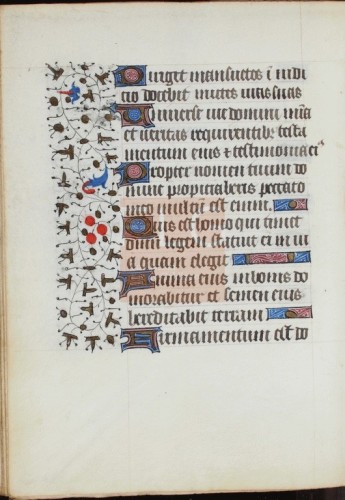 Diriget mansuetos ĩ iudi
cio docebit mites vias suas
Universe vie domini mĩa
et veritas requirentibꝫ testa
mentum eius & testimonia eiꝰ
Propter nomen tuum do
mine propiciaberis peccato
meo multũ est enim.
Quis est homo qui timet
dnm̃ legem statuit ei in vi
a quam elegit
Anima eius in bonis de
morabitur et semen eius
hereditabit terram
Firmamentum est do